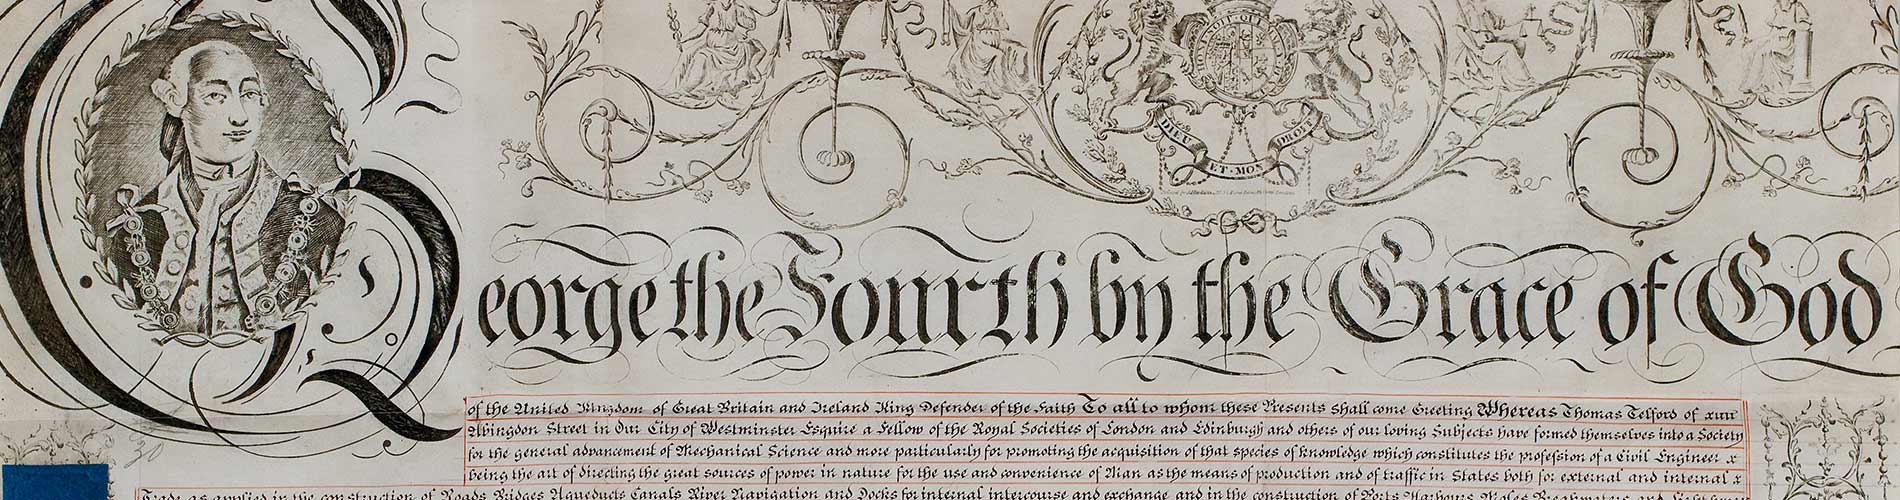 HONI SOIT QUI MAL Y PENSE
DIEU ET MON DROIT
George the Fourth by the Grace of God
of the United Kingdom of Great Britain and Ireland King Defender of the Faith To all to whom these Presents shall come Greeting Whereas Thomas Telford of
Abingdon Street in Our City of Westminster Esquire a Fellow of the Royal Societies of London and Edinburgh and others of our loving Subjects have formed themselves into a Society
for the general advancement of Mechanical Science and more particularly for promoting the acquisition of that species of knowledge which constitutes the profession of a Civil Engineer x
being the art of directing the great sources of power in nature for the use and convenience of Man as the means of production and of traffic in States both for external and internal x
Trade as applied in the construction of Roads Bridges Aqueducts Canals River Navigation and Docks for internal intercourse and exchange and in the construction of Ports Harbours Moles Breakwaters and
30